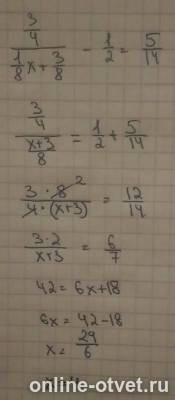 3/4 / (1/8 x + 3/8) - 1/2 = 5/14
3/4 / ((x+3)/8) = 1/2 + 5/14
3 · 8 2 / 4 · (x+3) = 12/14
3·2 / x+3 = 6/7
42 = 6x+18
6x = 42-18
x = 24/6
online-otvet.ru